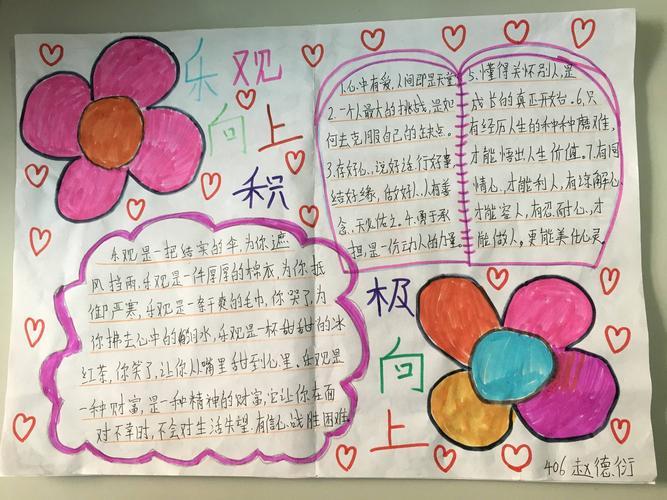 乐观
向上
积
极
向
上
1.心中有爱,人间即是天堂
2.一个人最大的挑战,是如
何去克服自己的缺点。
3.存好心、说好话、行好事
结好缘,做好人、人有善
念,天必佑之。4.勇于承
担,是一份动人的力量。
5.懂得关怀别人,是
成长的真正开始。6.只
有经历人生的种种磨难,
才能悟出人生价值。7.有同
情心,才能利人,有谅解心,
才能容人,有忍耐心,才
能做人,更能美化心灵。
乐观是一把结实的伞,为你遮
风挡雨,乐观是一件厚厚的棉衣,为你抵
御严寒,乐观是一条干爽的毛巾,你哭了,为
你拂去心中的泪水,乐观是一杯甜甜的冰
红茶,你笑了,让你从嘴里甜到心里,乐观是
一种财富,是一种精神的财富,它让你在面
对不幸时,不会对生活失望.有信心战胜困难
406 赵德衍